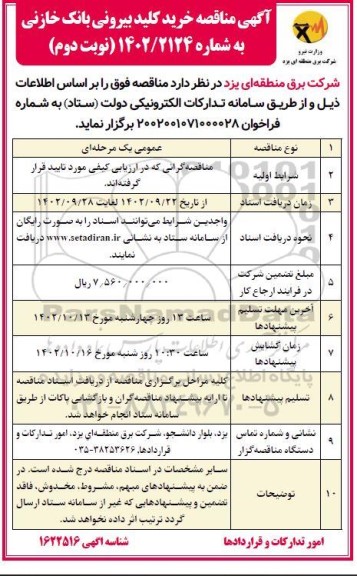 آگهی مناقصه خرید کلید بیرونی بانک خازنی
به شماره ۱۴۰۲/۲۱۲۴ (نوبت دوم)
وزارت نیرو
شرکت برق منطقه ای یزد
شرکت برق منطقه‌ای یزد در نظر دارد مناقصه فوق را بر اساس اطلاعات
ذیل و از طریق سامانه تدارکات الکترونیکی دولت (ستاد) به شماره
فراخوان ۲۰۰۲۰۰۱۰۷۱۰۰۰۰۲۸ برگزار نماید.
۱ نوع مناقصه عمومی یک مرحله‌ای
۲ شرایط اولیه مناقصه‌گرانی که در ارزیابی کیفی مورد تایید قرار
گرفته‌اند.
۳ زمان دریافت اسناد از تاریخ ۱۴۰۲/۰۹/۲۲ لغایت ۱۴۰۲/۰۹/۲۸
۴ نحوه دریافت اسناد واجدین شرایط می‌توانند اسناد را به صورت رایگان
از سامانه ستاد به نشانی www.setadiran.ir دریافت
نمایند.
۵ مبلغ تضمین شرکت
در فرایند ارجاع کار ۷,۵۶۰,۰۰۰,۰۰۰ ریال
۶ آخرین مهلت تسلیم
پیشنهادها ساعت ۱۳ روز چهارشنبه مورخ ۱۴۰۲/۱۰/۱۳
۷ زمان گشایش
پیشنهادها ساعت ۱۰:۳۰ روز شنبه مورخ ۱۴۰۲/۱۰/۱۶
۸ تسلیم پیشنهادها کلیه مراحل برگزاری مناقصه از دریافت اسناد مناقصه
تا ارایه پیشنهاد مناقصه‌گران و بازگشایی پاکات از طریق
سامانه ستاد انجام خواهد شد.
۹ نشانی و شماره تماس
دستگاه مناقصه‌گزار یزد، بلوار دانشجو، شرکت برق منطقه‌ای یزد، امور تدارکات و
قراردادها، ۳۸۲۵۳۶۲۶-۰۳۵
۱۰ توضیحات سایر مشخصات در اسناد مناقصه درج شده است. در
ضمن به پیشنهادهای مبهم، مشروط، مخدوش، فاقد
تضمین و پیشنهادهایی که غیر از سامانه ستاد ارسال
گردد ترتیب اثر داده نخواهد شد.
امور تدارکات و قراردادها شناسه اگهی ۱۶۲۲۵۱۶